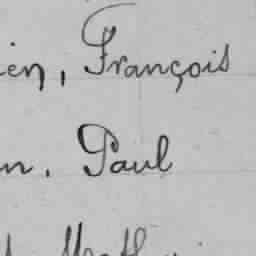 ien, François
n. Paul